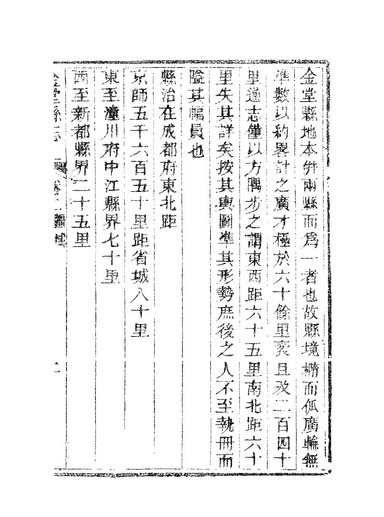 金堂縣地本併兩縣而爲一者也故縣境楕而侈廣輪無
準數以約畧計之廣才極於六十餘里袤且及二百四十
里邊志僅以方隅步之謂東西距六十五里南北距六十
里失其詳矣按其輿圖準其形勢庶後之人不至執冊而
隘其幅員也
縣治在成都府東北距
京師五千六百五十里距省城八十里
東至潼川府中江縣界七十里
西至新都縣界二十五里
金堂縣志